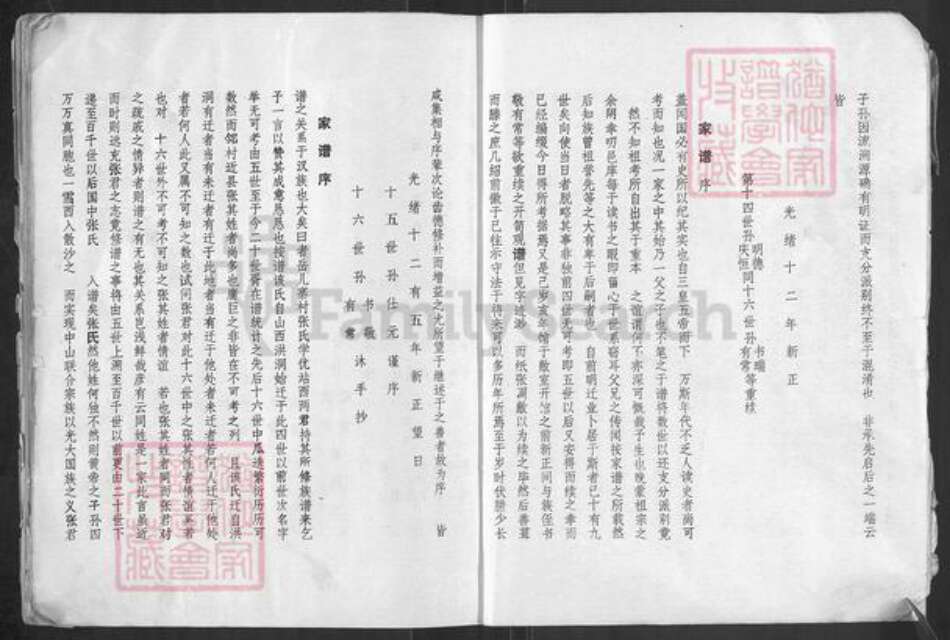 子孙因流溯源确有明证而支分派别终不至于混淆也 非承先启后之一端云
皆
光绪十二年新正
第十四世孙 明德 庆恒 同十六世孙 书瑞 有常 等重续
家谱序
盖闻国必有史所以纪其实也自三皇五帝而下 万斯年代不乏人读史者尚可
考而知也况一家之中其始乃一父之子也不笔之于谱将数世以还支分派别竟
然不知祖考所自出其于重本 之谊谓何不亦深可慨哉予生也晚蒙祖宗之
余荫幸叨邑庠每于读书之暇即留心于世系窃耳父兄之传闻按家谱之所载然
后知族曾祖普先等之大有卑于后嗣者也 自前明迁业卜居于斯者已十有九
世矣向使当日者脱略其事非独前四世无可考即五世以后又安得而续之幸而
已经编缀今日得所考据焉又是已岁亥年馆于敝室开 之前新正间与族侄书
敬有常等欲重续之开筒观谱但见字迹渺 而纸张凋敝以为续之毕然后善葺
而誊之庶几绍前徽于已往示守法于将来可以多历年所焉至于岁时伏腊少长
咸集相与序辈次论齿德修补而增益之尤所望于继述子之善者故为序
皆
光绪十二有五年新正望日
十五世孙仕元谨序
十六世孙 书敬 有常 沐手抄
家谱序
谱之关系于汉族也大矣曰者岳儿寨村张氏学优站西两君持其所修族谱来乞
予一言以赞其成意恳恳也按谱该氏自山西洪洞始迁于此四世以前世次名字
举无可考由五世至于今二十世胥在谱统计之先后十六世中瓜迭繁衍历历可
数然而邻村近县张其姓者尚多也廉巨之非皆在不可考之列 且该氏迁自洪
洞有迁者当有未迁者有迁于此地者当有迁于他处者未迁者若何人迁于他处
者若何人此又属不可知之数也试问张君对此十六世中之张其姓者情谊奚若
也对 十六世外不可考不可知之张其姓者情谊 若也张其姓者同而张君对
之疏戚之情异者则谱之有无也其关系岂浅鲜哉彦有云同姓是一家此言虽近
而时则远充张君之志竟修谱之事将由五世上溯至百千世以前更由二十世下
递至百千世以后国中张氏 入谱矣张氏然他姓何独不然则黄帝之子孙四
万万真同胞也一雪西人散沙之 而实现中山联合宗族以光大国族之义张君